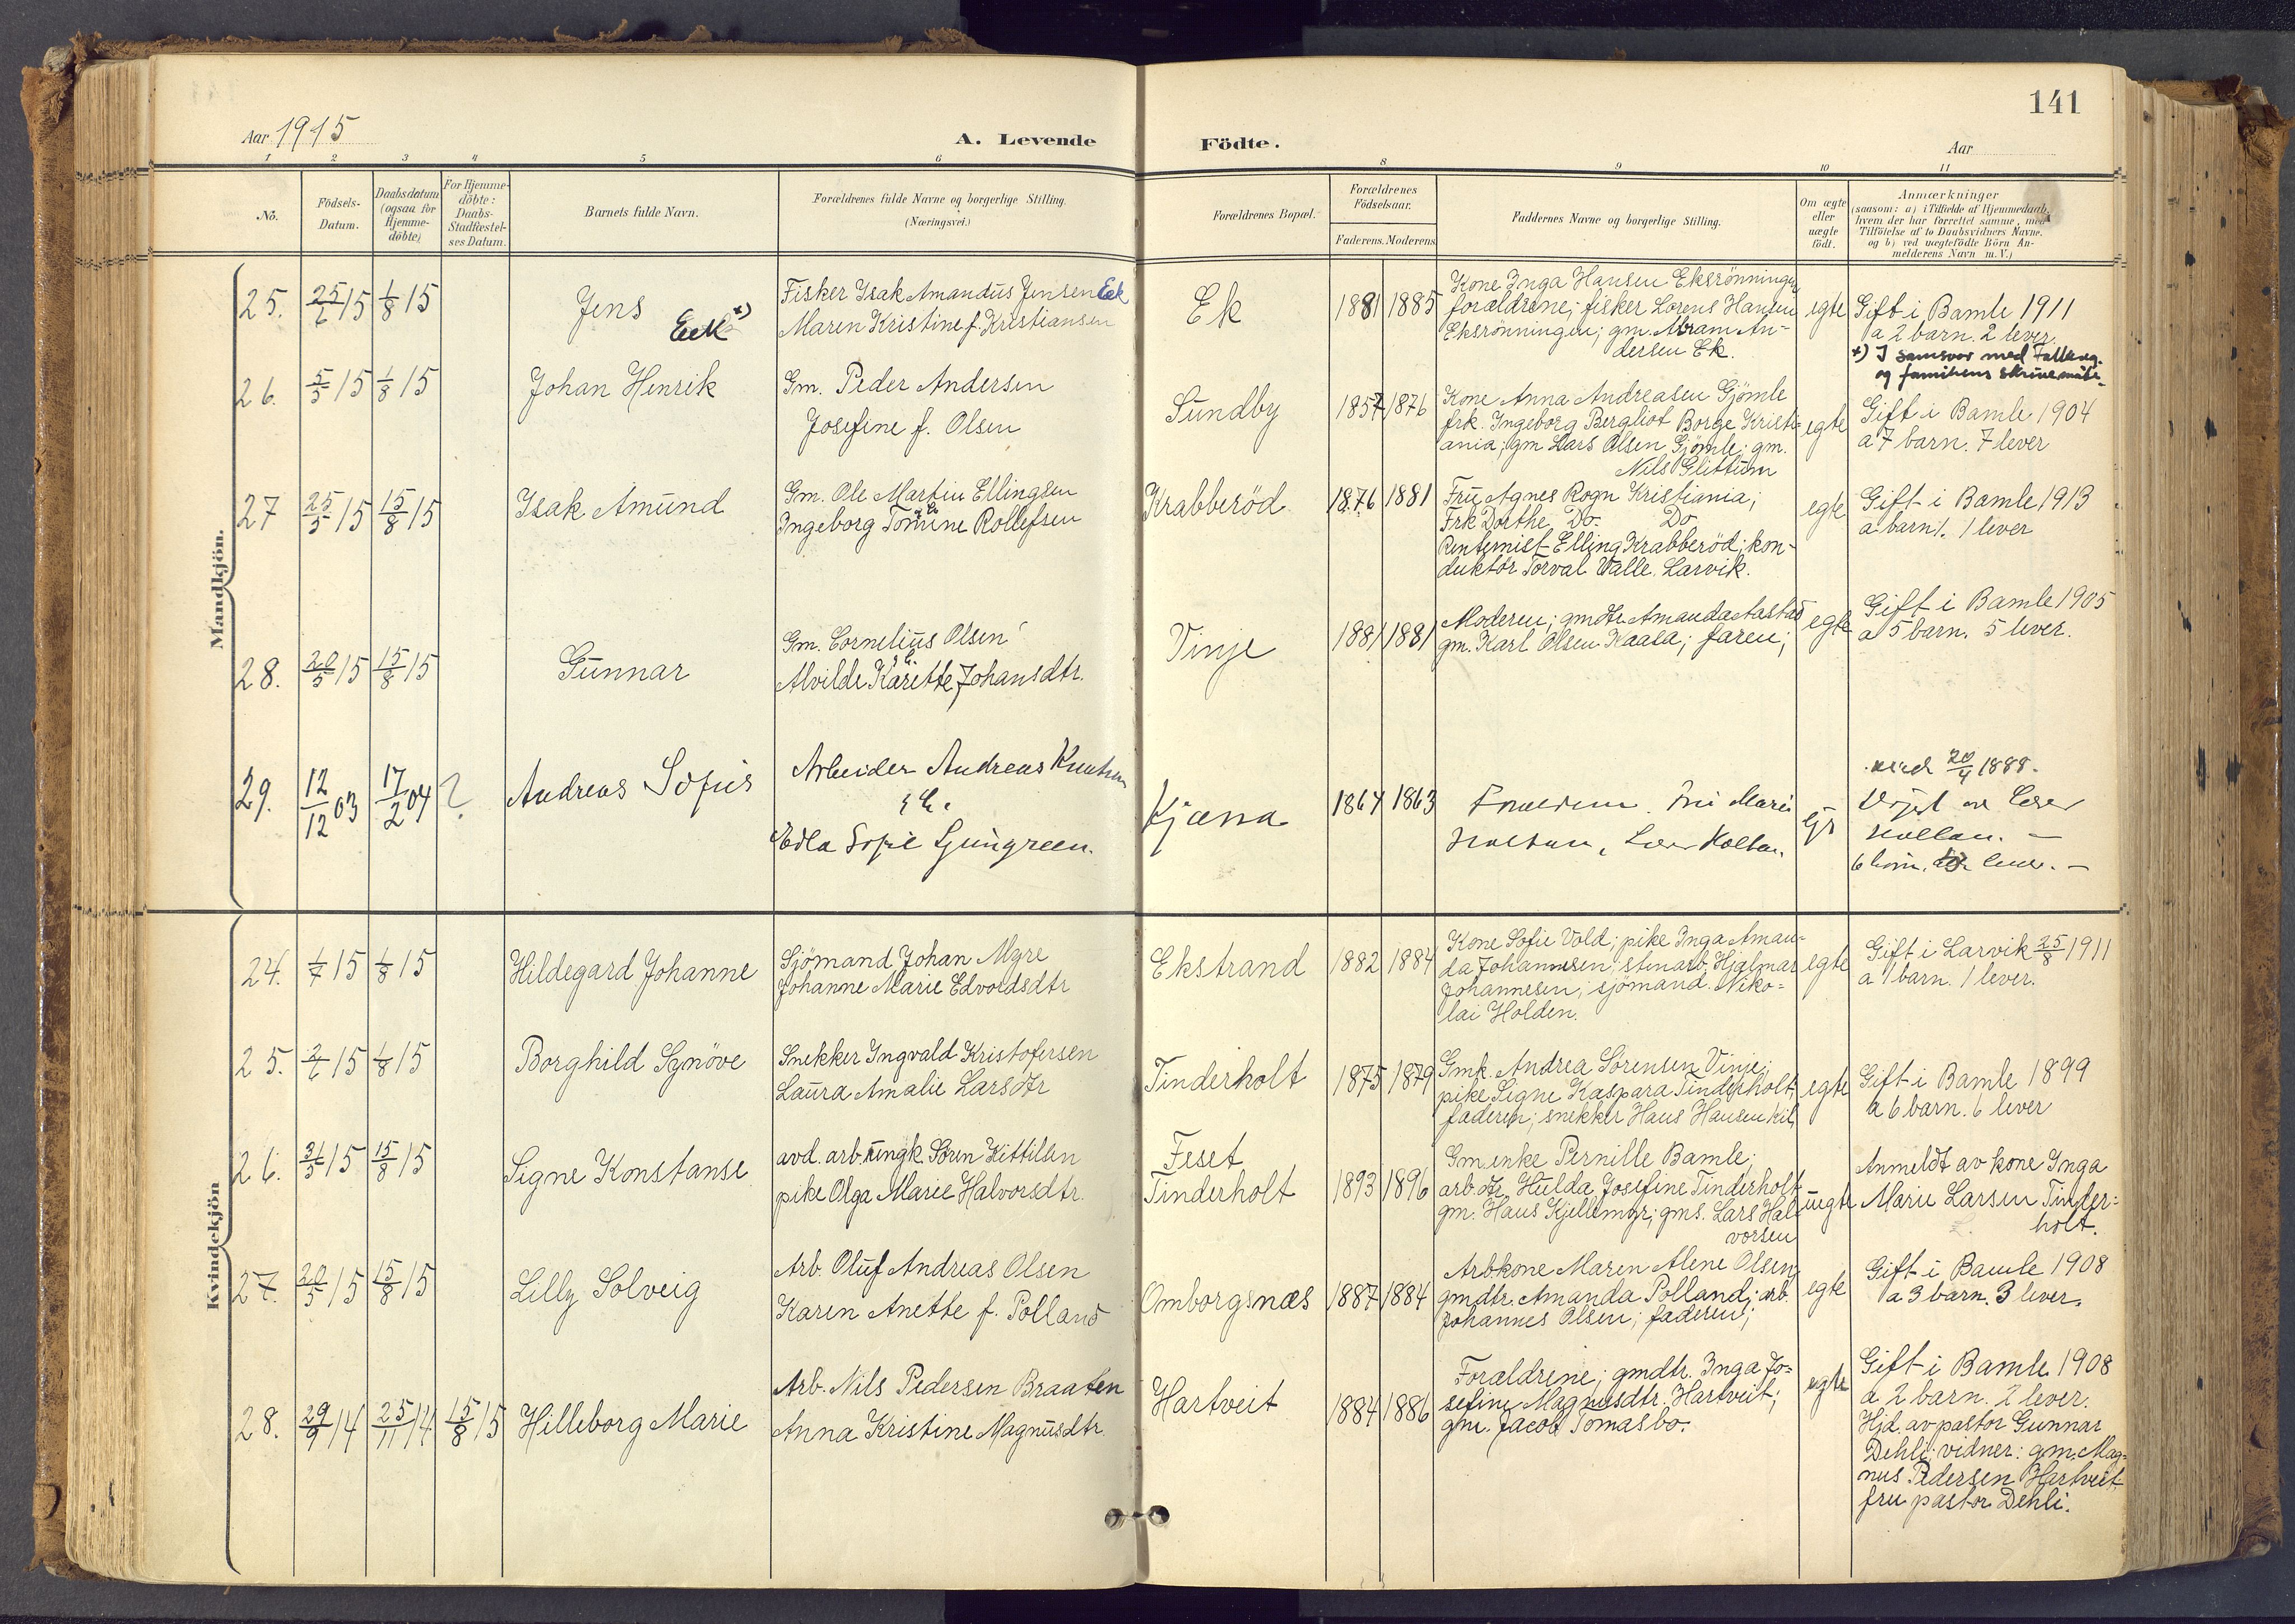 141
Aar 1915
A. Levende Födte.
Aar
1 2 3 4 5 6 8 9 10 11
No.
Födsels-
Datum.
Daabsdatum
(ogsaa for
Hjemme-
döbte)
For Hjemme-
döbte:
Daabs-
Stadfæstel-
ses Datum.
Barnets fulde Navn.
Forældrenes fulde Navne og borgerlige Stilling.
(Næringsvei.)
Forældrenes Bopæl.
Forældrenes
Födselsaar.
Faderens. Moderens
Faddernes Navne og borgerlige Stilling.
Om ægte
eller
uægte
födt.
Anmærkninger
(saasom: a) i Tilfælde af Hjemmedaab,
hvem der har forrettet samme, med
Tilföielse af to Daabsvidners Navne.
og b) ved uægtefödte Börn An-
melderens Navn m.V.)
Mandkjön.
25. 25/6 15 1/8 15
Jens
Eek x)
Fisker Isak Amandus Jensen Eek
Maren Kristine f. Kristiansen
Ek
1881 1885
Kone Inga Hansen Eksrönningen
forældrene; fisker Lorens Hansen
Eksrönningen; gm. Abram An-
dersen Ek.
egte
Gift i Bamle 1911
a 2 barn. 2 lever.
x) I samsvar med
og familiens skrivemåte.
26. 5/5 15 1/8 15
Johan Henrik
Gm. Peder Andersen
Josefine f. Olsen
Sundby
1857 1876
Kone Anna Andreasen Gjömle
frk. Ingeborg Bergliot Borge Kristi-
ania; gm Lars Olsen Gjömle; gm.
Nils Glittum
egte
Gift i Bamle 1904
a 7 barn. 7 lever
27 25/5 15 15/8 15
Isak Amund
Gm. Ole Martin Ellingsen
Ingeborg Tomine Rollefsen
Krabberöd
1876 1881
Fru Agnes Rogn Kristiania;
Frk Dorthe Do. Do
Rentemist Elling Krabberöd; kon-
duktör Torval Valle. Larvik.
egte
Gift i Bamle 1913
a barn 1. 1 lever
28. 20/5 15 15/8 15
Gunnar
Gm. Cornelius Olsen
Alvilde Karette Johansdtr.
Vinje
1881 1881
Moderen; gmdtr Amanda Aastad
gm. Karl Olsen Kaasa; faren;
egte
Gift i Bamle 1905
a 5 barn. 5 lever.
29. 12/12 03 17/2 04 ?
Andreas Sofus
Arbeider Andreas Knutsen
Edla Sofie Ljungreen.
Kjærra
1864 1863
Marie
20/4 1888.
Kvindekjön
24. 1/7 15 1/8 15
Hildegard Johanne
Sjömand Johan Myre
Johanne Marie Edvordsdtr
Ekstrand
1882 1884
Kone Sofie Vold; pike Inga Aman-
da Johannesen; stenarb. Hjalmar
Johannesen; sjömand. Niko-
lai Holden.
egte
Gift i Larvik 25/8 1911
a 1 barn. 1 lever.
25. 2/6 15 1/8 15
Borghild Synöve
Snekker Ingvald Kristofersen
Laura Amalie Larsdtr
Tinderholt
1875 1879
Gmk. Andrea Sörensen Vinje;
pike Signe Kaspara Tinderholt;
faderen; snekker Hans Hansen Kil
egte
Gift i Bamle 1899
a 6 barn. 6 lever
26. 31/5 15 15/8 15
Signe Konstanse
avd. arb. ungk. Sören Kittillsen
pike Olga Marie Halvorsdtr.
Feset
Tinderholt
1893 1896
Gm enke Pernille Bamle;
arb. dtr. Hulda Josefine Tinderholt
gm. Hans Kjellmyr; gms. Lars Hal-
vorsen
uegte
Anmeldt av kone Inga
Marie Larsen Tinder-
holt.
27. 20/5 15 15/8 15
Lilly Solveig
Arb. Oluf Andreas Olsen
Karen Anette f. Polland
Omborgsnæs
1887 1884
Arbkone Maren Alene Olsen
gmdtr. Amanda Polland; arb.
Johannes Olsen; faderen;
egte
Gift i Bamle 1908
a 3 barn. 3 lever.
28. 29/9 14 25/11 14 15/8 15
Hilleborg Marie
Arb. Nils Pedersen Braaten
Anna Kristine Magnusdtr.
Hartveit
1884 1886
Foraldrene; gmdtr. Inga Jo-
sefine Magnusdtr. Hartveit;
gm. Jacob Tomasbo.
egte
Gift i Bamle 1908
a 2 barn. 2 lever.
Hjd. av pastor Gunnar
Dehli; vidner: gm. Mag-
nus Pedersen Hartveit
fru pastor Dehli.